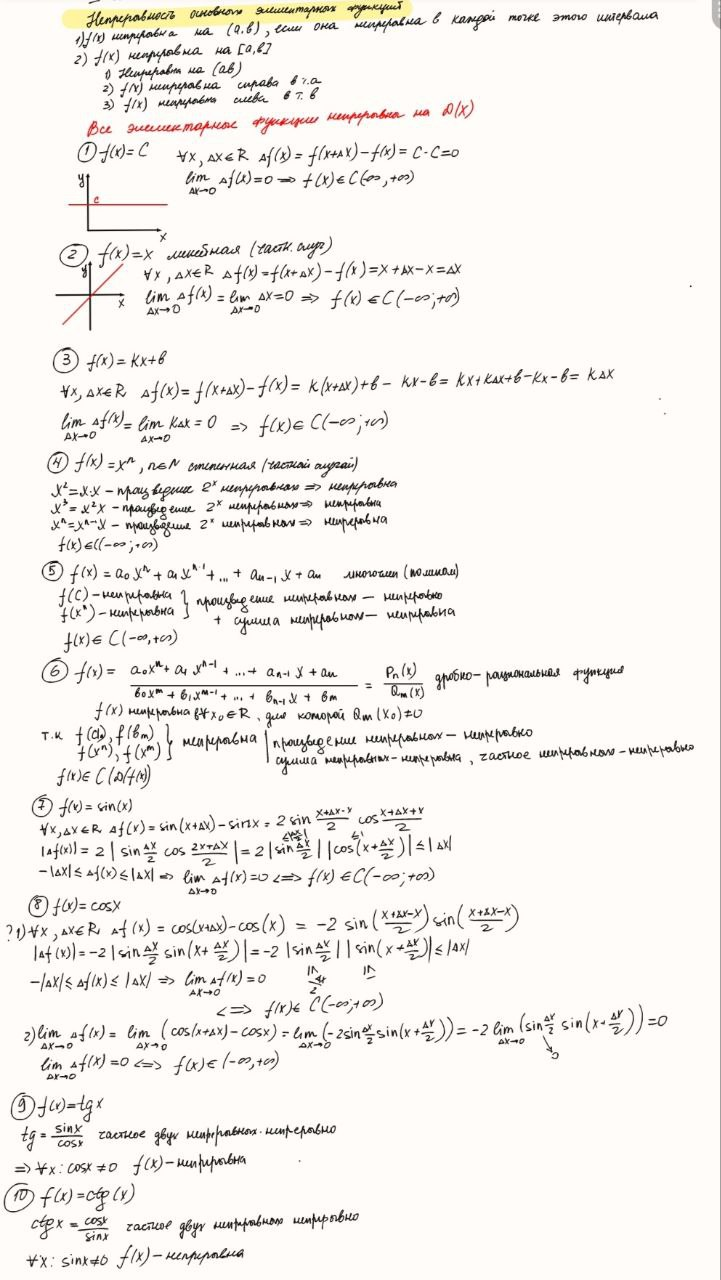 Непрерывность основного элементарных функций
1) f(x) непрерывна на (a,b), если она непрерывна в каждой точке этого интервала
2) f(x) непрерывна на [a,b]
1) Непрерывна на (ab)
2) f(x) непрерывна справа в т.a
3) f(x) непрерывна слева в т. в
Все элементарные функции непрерывна на D(x)
① f(x)=C ∀x, Δx∈R Δf(x) = f(x+Δx)-f(x)= C-C=0
lim Δx→0 Δf(x)=0 ⇒ f(x)∈C(-∞,+∞)
y
c
x
② f(x)=x линейная (частн. случ)
∀x, Δx∈R Δf(x)=f(x+Δx)-f(x)=x+Δx-x=Δx
lim Δx→0 Δf(x)=lim Δx→0 Δx=0 ⇒ f(x)∈C(-∞;+∞)
y
x
③ f(x)=kx+в
∀x, Δx∈R Δf(x)= f(x+Δx)-f(x)= k(x+Δx)+в- kx-в= kx+kΔx+в-kx-в= kΔx
lim Δx→0 Δf(x)=lim Δx→0 kΔx = 0 ⇒ f(x)∈C(-∞;+∞)
④ f(x)=xⁿ, n∈N степенная (частной случай)
x²=x·x - произведение 2ˣ непрерывных ⇒ непрерывна
x³= x²x - произведение 2ˣ непрерывных ⇒ непрерывна
xⁿ=xⁿ⁻¹·x - произведение 2ˣ непрерывных ⇒ непрерывна
f(x)∈C(-∞;+∞)
⑤ f(x)= a₀xⁿ + a₁xⁿ⁻¹ + ... + aₙ₋₁x + aₙ многочлен (полином)
f(C) - непрерывна } произведение непрерывных — непрерывно
f(xⁿ) - непрерывна } + сумма непрерывных — непрерывна
f(x)∈C(-∞,+∞)
⑥ f(x)= (a₀xⁿ+a₁xⁿ⁻¹+...+aₙ₋₁x+aₙ)/(в₀xᵐ+в₁xᵐ⁻¹+...+вₘ₋₁x+вₘ) = Pₙ(x)/Qₘ(x) дробно-рациональная функция
f(x) непрерывна в ∀x₀∈R, для которой Qₘ(x₀)≠0
т.к f(aₙ), f(вₘ) } непрерывна | произведение непрерывных — непрерывно
f(xⁿ), f(xᵐ) } сумма непрерывных - непрерывна, частное непрерывного - непрерывно
f(x)∈C(D(f(x))
⑦ f(x)=sin(x)
∀x, Δx∈R Δf(x)=sin(x+Δx)-sinx= 2 sin (x+Δx-x)/2 cos (x+Δx+x)/2
|Δf(x)|= 2|sin Δx/2 cos (2x+Δx)/2|= 2|sin Δx/2| |cos(x+Δx/2)|≤|Δx|
≤|Δx/2| ≤1
-|Δx|≤Δf(x)≤|Δx| ⇒ lim Δx→0 Δf(x)=0 ⇔ f(x)∈C(-∞;+∞)
⑧ f(x)=cosx
? 1) ∀x, Δx∈R, Δf(x)= cos(x+Δx)-cos(x)= -2 sin((x+Δx-x)/2) sin((x+Δx-x)/2)
|Δf(x)|=-2|sin Δx/2 sin(x+Δx/2)|=-2|sin Δx/2| |sin(x+Δx/2)|≤|Δx|
-|Δx|≤Δf(x)≤|Δx| ⇒ lim Δx→0 Δf(x)=0
⇔ f(x)∈C(-∞;+∞)
2) lim Δx→0 Δf(x)= lim Δx→0 (cos(x+Δx)-cosx)= lim Δx→0 (-2sin Δx/2 sin(x+Δx/2))= -2 lim Δx→0 (sin Δx/2 sin(x+Δx/2))=0
0
lim Δx→0 Δf(x)=0 ⇔ f(x)∈(-∞,+∞)
⑨ f(x)=tgx
tg = sinx/cosx частное двух непрерывных - непрерывно
⇒ ∀x: cosx≠0 f(x) - непрерывна
⑩ f(x)=ctg(x)
ctgx = cosx/sinx частное двух непрерывных непрерывно
∀x: sinx≠0 f(x) - непрерывна